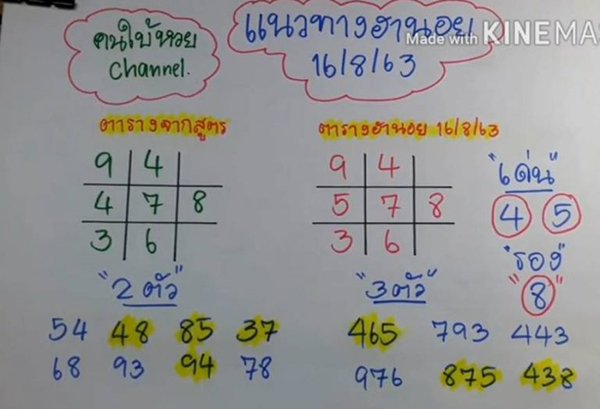 คนใบ้หวย
Channel.
แนวทางฮานอย
16/8/63
Made with KINEMA
ตารางจากสูตร
9 4
4 7 8
3 6
ตารางฮานอย 16/8/63
9 4
5 7 8
3 6
"เด่น"
4 5
"รอง"
"8"
"2 ตัว"
54 48 85 37
68 93 94 78
"3 ตัว"
465 793 443
976 875 438